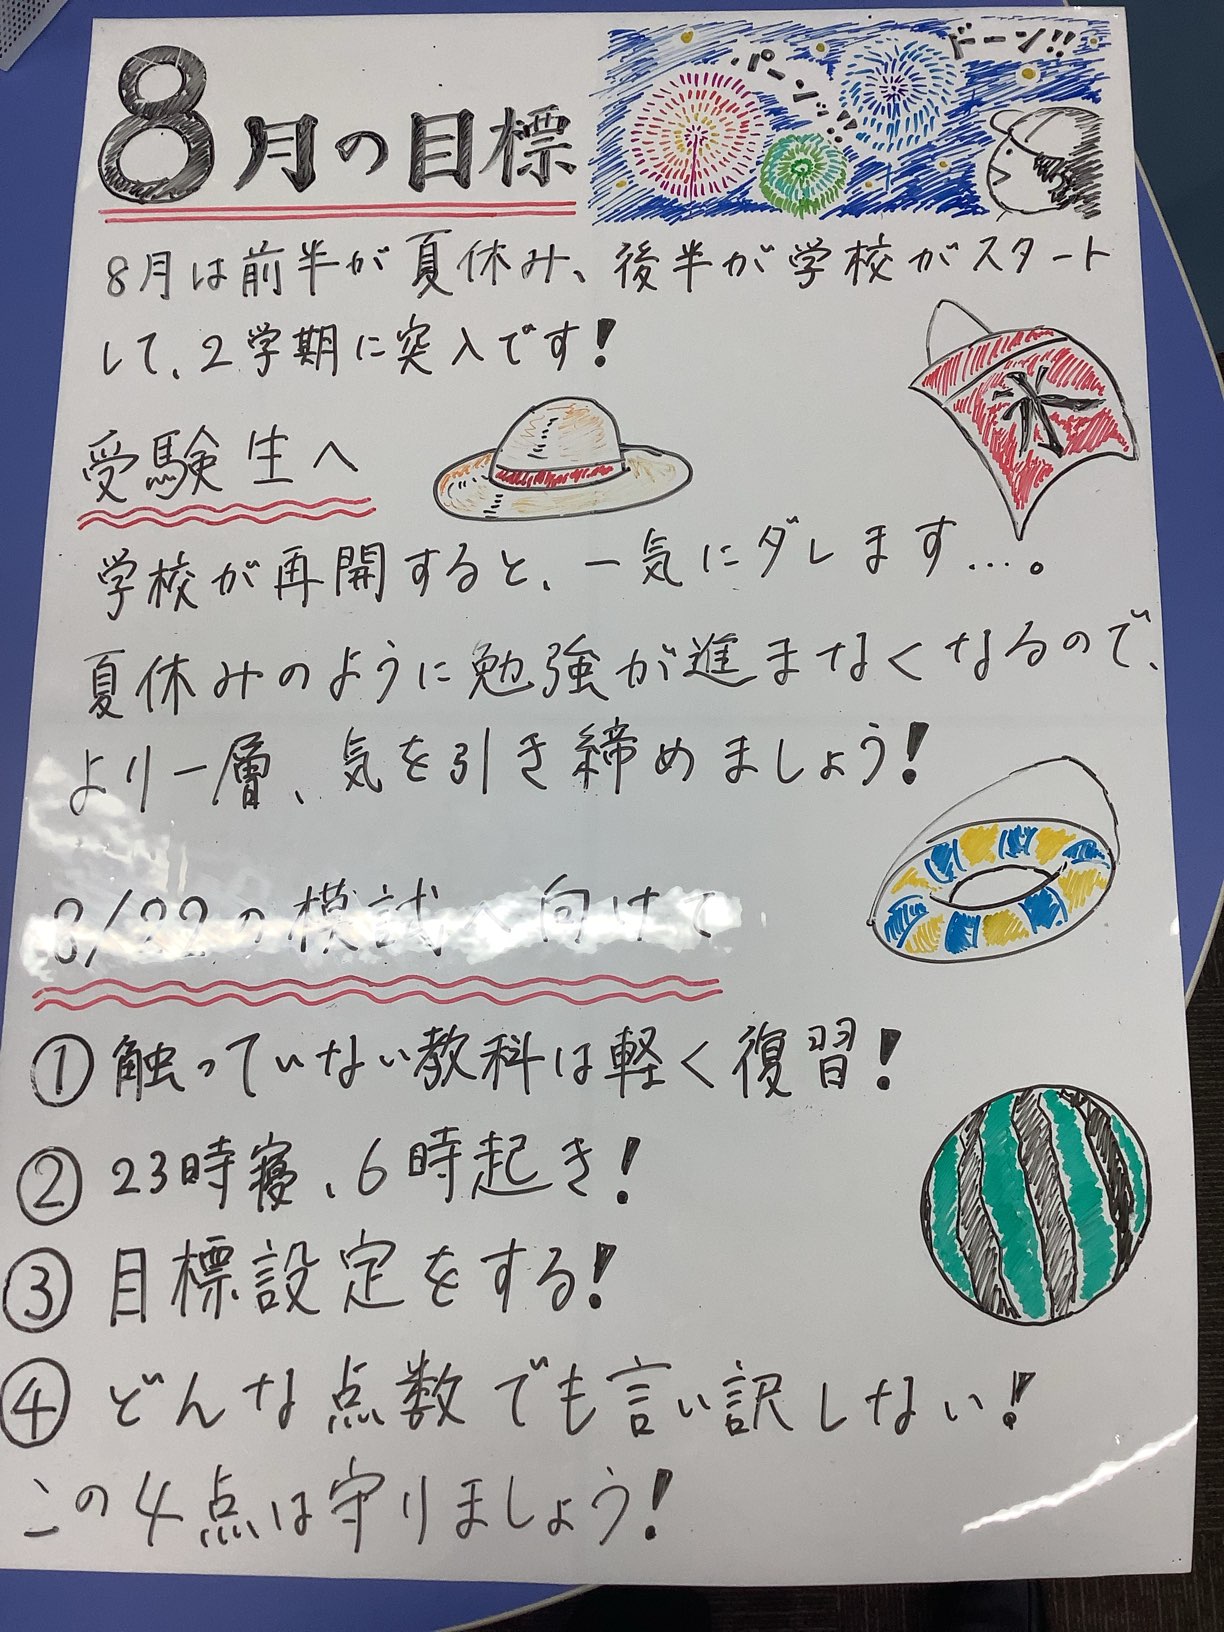 8月の目標
パーン!!
ドーン!!
8月は前半が夏休み、後半が学校がスタート
して、2学期に突入です!
氷
受験生へ
学校が再開すると、一気にダレます…。
夏休みのように勉強が進まなくなるので、
より一層、気を引き締めましょう!
8/22の模試へ向けて
①触っていない教科は軽く復習!
②23時寝、6時起き!
③目標設定をする!
④どんな点数でも言い訳しない!
この4点は守りましょう!